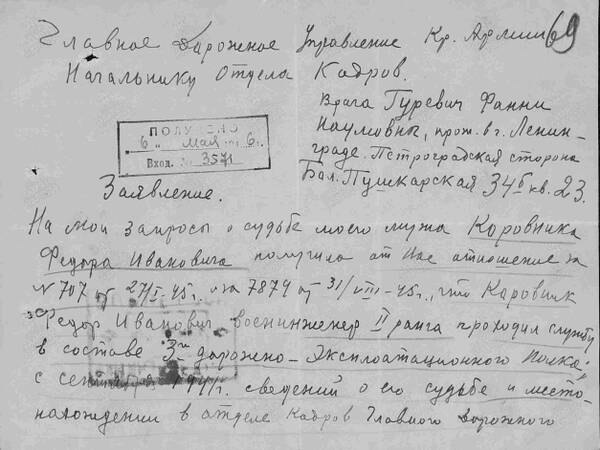 Главное Дорожное Управление Кр. Армии 69
Начальнику Отдела Кадров.
Врача Гуревич Фанни
Наумовны, прож. в г. Ленин-
граде. Петроградская сторона
Бол. Пушкарская 34б кв. 23.
ПОЛУЧЕНО
6 " мая 6г.
Вход. № 3571
Заявление.
На мои запросы о судьбе моего мужа Коровника
Федора Ивановича получила от Вас отношение за
N 707 от 27/I-45г. и за 7874 от 31/VIII-45г., что Коровник
Федор Иванович военинженер II ранга проходил службу
в составе 3го дорожно-Эксплоатационного Полка,
с 1941г. сведений о его судьбе и место-
нахождении в отделе Кадров Главного Дорожного